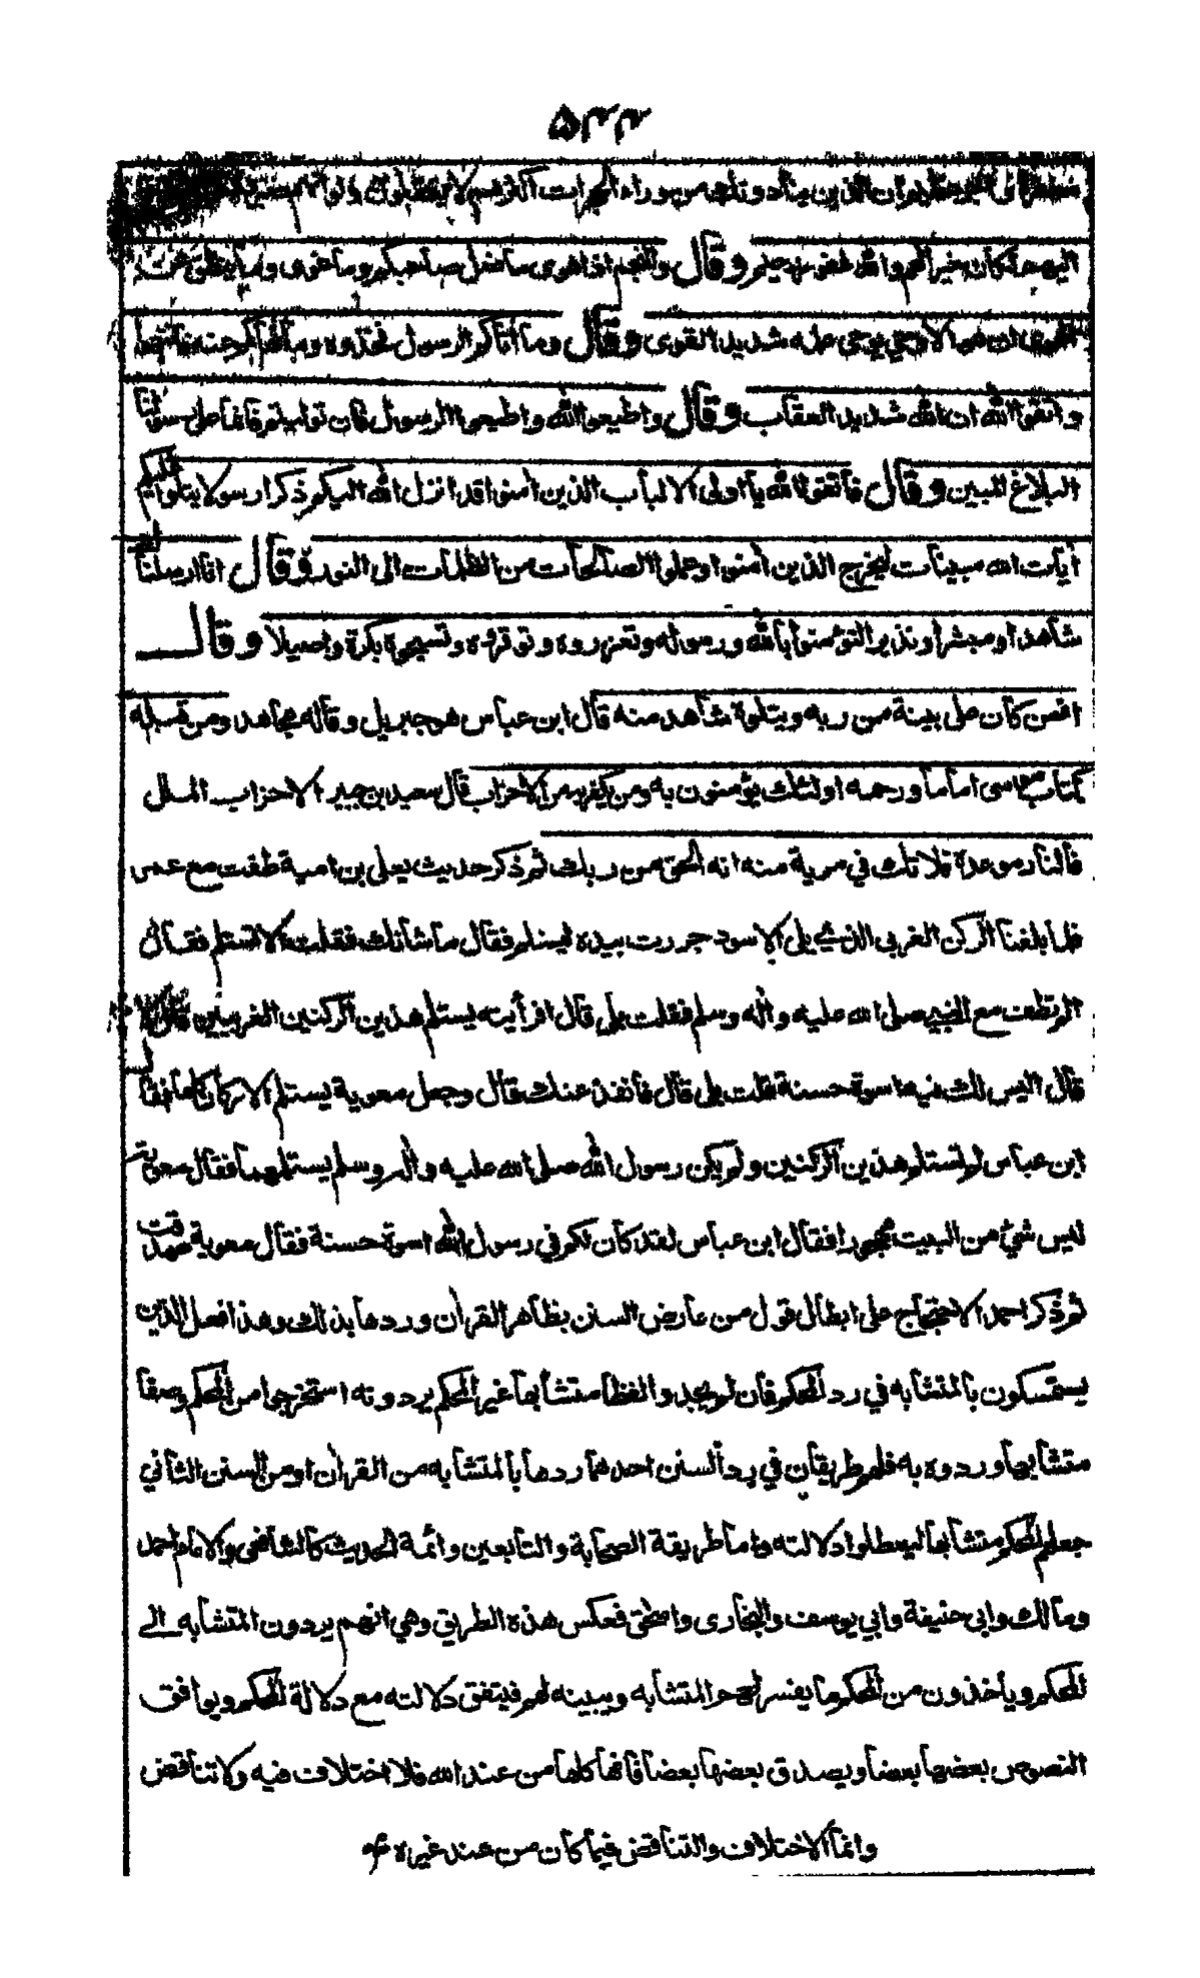 ۵۴۴
ان الذين ينادونك من وراء الحجرات اكثرهم لا يعقلون ولو انهم صبروا حتى تخرج
اليهم لكان خيرا لهم والله غفور رحيم وقال والنجم اذا هوى ما ضل صاحبكم وما غوى وما ينطق عن
الهوى ان هو الا وحي يوحى علمه شديد القوى وقال وما اتاكم الرسول فخذوه وما نهاكم عنه فانتهوا
واتقوا الله ان الله شديد العقاب وقال واطيعوا الله واطيعوا الرسول فان توليتم فانما على رسولنا
البلاغ المبين وقال فاتقوا الله يا اولى الالباب الذين امنوا قد انزل الله اليكم ذكرا رسولا يتلوا عليكم
أيات الله مبينات ليخرج الذين امنوا وعملوا الصالحات من الظلمات الى النور وقال انا ارسلناك
شاهدا ومبشرا ونذيرا لتؤمنوا بالله ورسوله وتعزروه وتوقروه وتسبحوه بكرة واصيلا وقال
افمن كان على بينة من ربه ويتلوه شاهد منه قال ابن عباس هو جبريل وقاله مجاهد ومن قبله
كتاب موسى اماما ورحمة اولئك يؤمنون به ومن يكفر به من الاحزاب قال سعيد بن جبير الاحزاب الملل
فالنار موعده فلا تك في مرية منه انه الحق من ربك ثم ذكر حديث يعلى بن امية طفت مع عمر
فلما بلغنا الركن الغربي الذي يلي الاسود جررت بيده ليستلم فقال ما شأنك فقلت الا تستلم فقال
الم تطف مع النبي صلى الله عليه واله وسلم فقلت بلى قال افرأيته يستلم هذين الركنين الغربيين قلت لا
قال اليس لك فيه اسوة حسنة قلت بلى قال فانفذ عنك قال وجعل معوية يستلم الاركان كلها فقال
ابن عباس لم تستلم هذين الركنين ولم يكن رسول الله صلى الله عليه واله وسلم يستلمهما فقال معوية
ليس شيء من البيت مهجورا فقال ابن عباس لقد كان لكم في رسول الله اسوة حسنة فقال معوية صدقت
ثم ذكر احمد الاحتجاج على ابطال قول من عارض السنن بظاهر القران وردها بذلك وهذا فعل الذين
يستمسكون بالمتشابه في رد المحكم فان لم يجدوا لفظا متشابها غير المحكم يردونه استخرجوا من المحكم وصفا
متشابها وردوه به فلهم طريقان في رد السنن احدهما ردها بالمتشابه من القران او من السنن الثاني
جعلهم المحكم متشابها ليعطلوا دلالته واما طريقة الصحابة والتابعين وائمة الحديث كالشافعى والامام احمد
ومالك وابى حنيفة وابي يوسف والبخارى واسحق فعكس هذه الطريق وهي انهم يردون المتشابه الى
المحكم ويأخذون من المحكم ما يفسر لهم المتشابه ويبينه لهم فيتفق دلالته مع دلالة المحكم ويوافق
النصوص بعضها بعضا ويصدق بعضها بعضا فانها كلها من عند الله فلا اختلاف فيه ولا تناقض
وانما الاختلاف والتناقض فيما كان من عند غيره